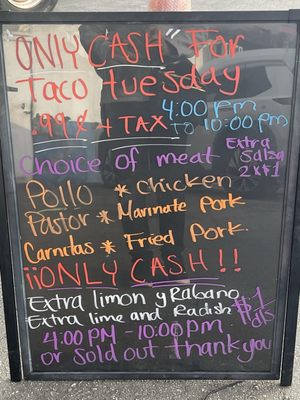 "ONLY CASH" For
Taco tuesday
.99¢ + TAX 4:00 pm to 10:00 pm
Choice of meat Extra Salsa 2x$1
Pollo * Chicken
Pastor * Marinate Pork
Carnitas * Fried Pork.
¡¡ONLY CASH!!
Extra limon y Rabano
Extra lime and Radish $1 dls
4:00 PM - 10:00 pm
or Sold out thank you